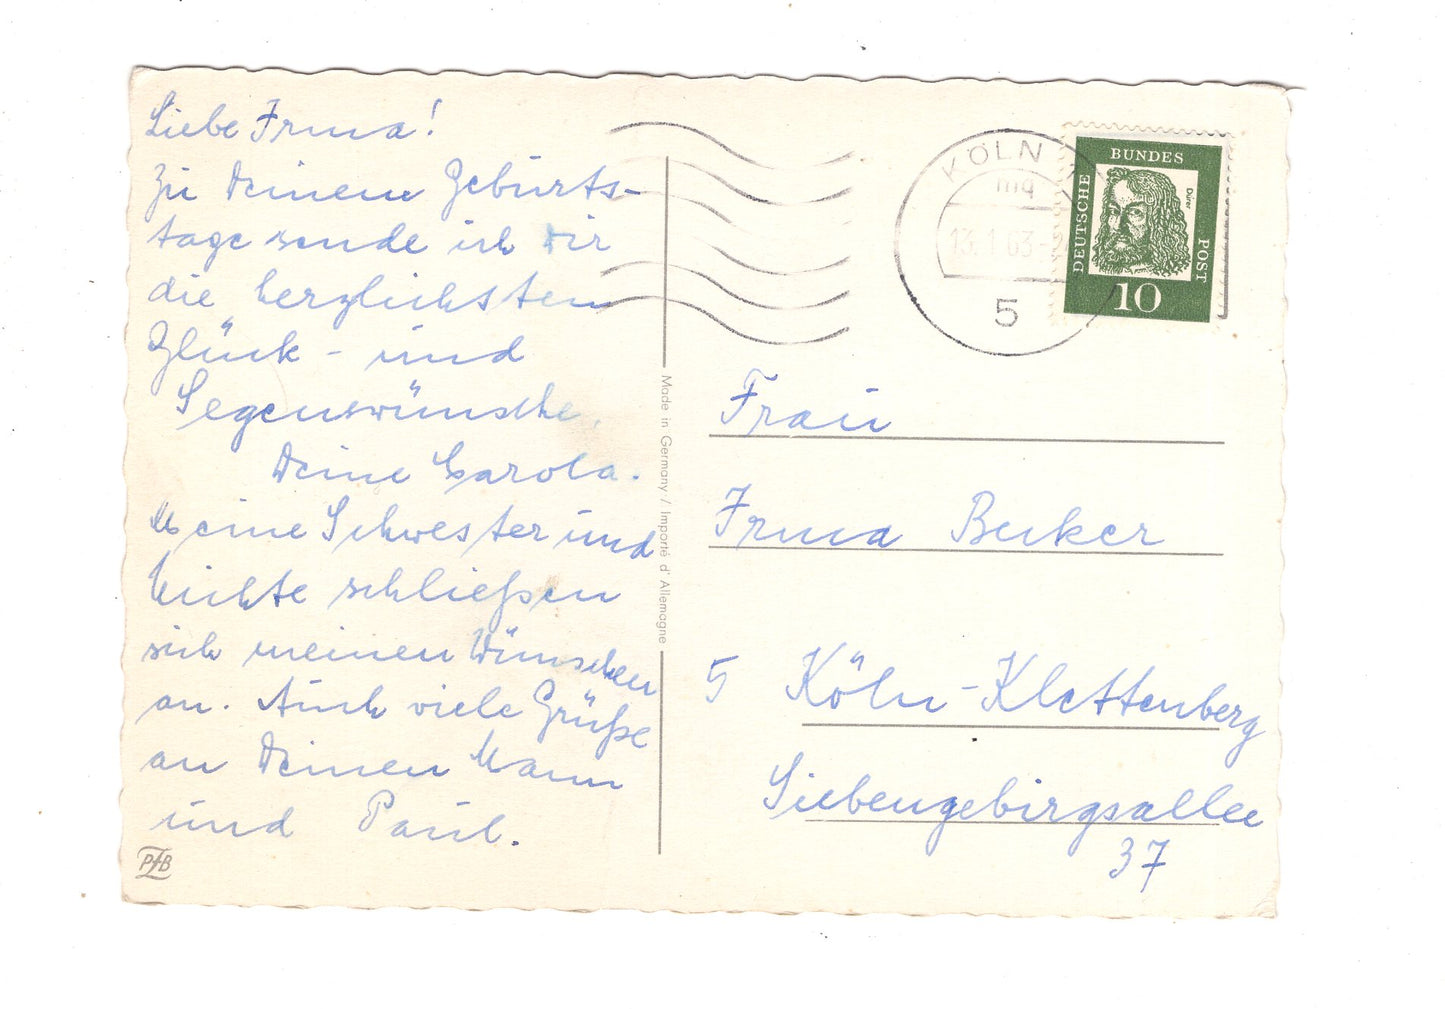 Liebe Irma!
Zu Deinem Geburts-
tage sende ich Dir
die herzlichsten
Glück- und
Segenswünsche.
Deine Carola.
Meine Schwester und
Nichte schließen
sich meinen Wünschen
an. Auch viele Grüße
an Deinen Mann
und Paul.
PFB
Made in Germany / Importé d'Allemagne
KÖLN
mq
13.1.63-2
5
DEUTSCHE
BUNDES
POST
Dürer
10
Frau
Irma Becker
5 Köln-Klettenberg
Siebengebirgsallee
37